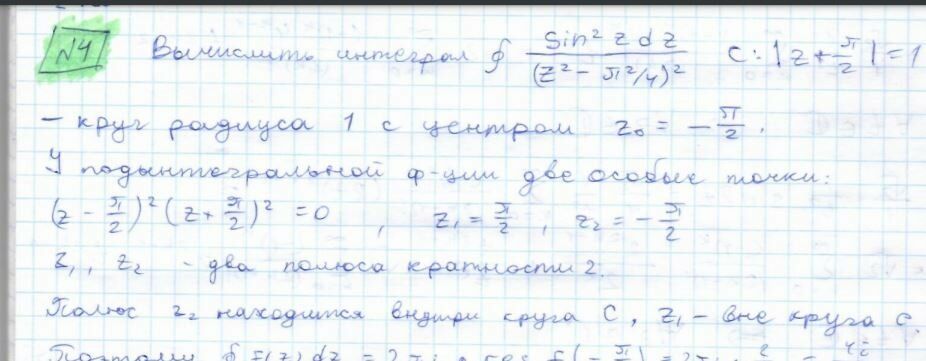 №4 Вычислить интеграл ∮ sin² z dz / (z² - π²/4)² C: |z + π/2| = 1
- круг радиуса 1 с центром z₀ = - π/2.
У подынтегральной ф-ции две особые точки:
(z - π/2)² (z + π/2)² = 0 , z₁ = π/2 , z₂ = - π/2
z₁, z₂ - два полюса кратности 2.
Полюс z₂ находится внутри круга C, z₁ - вне круга C.